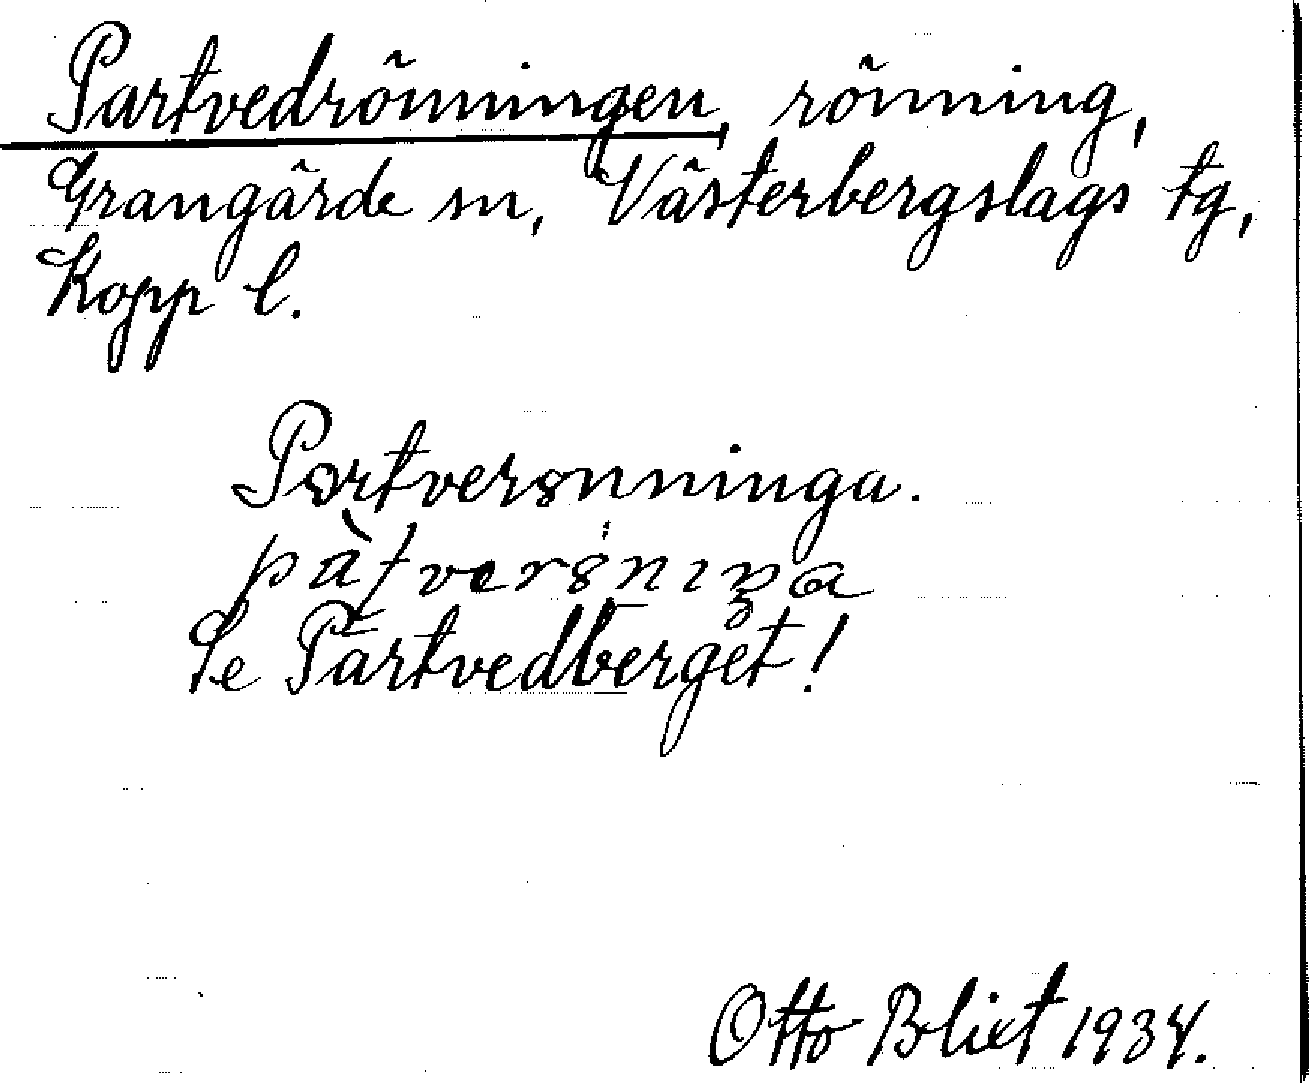 Partvedrönningen, rönning,
Grangärde sn, Västerbergslags tg,
Kopp l.
Partverønninga.
Se Pärtvedberget!
Otto Blixt 1934.